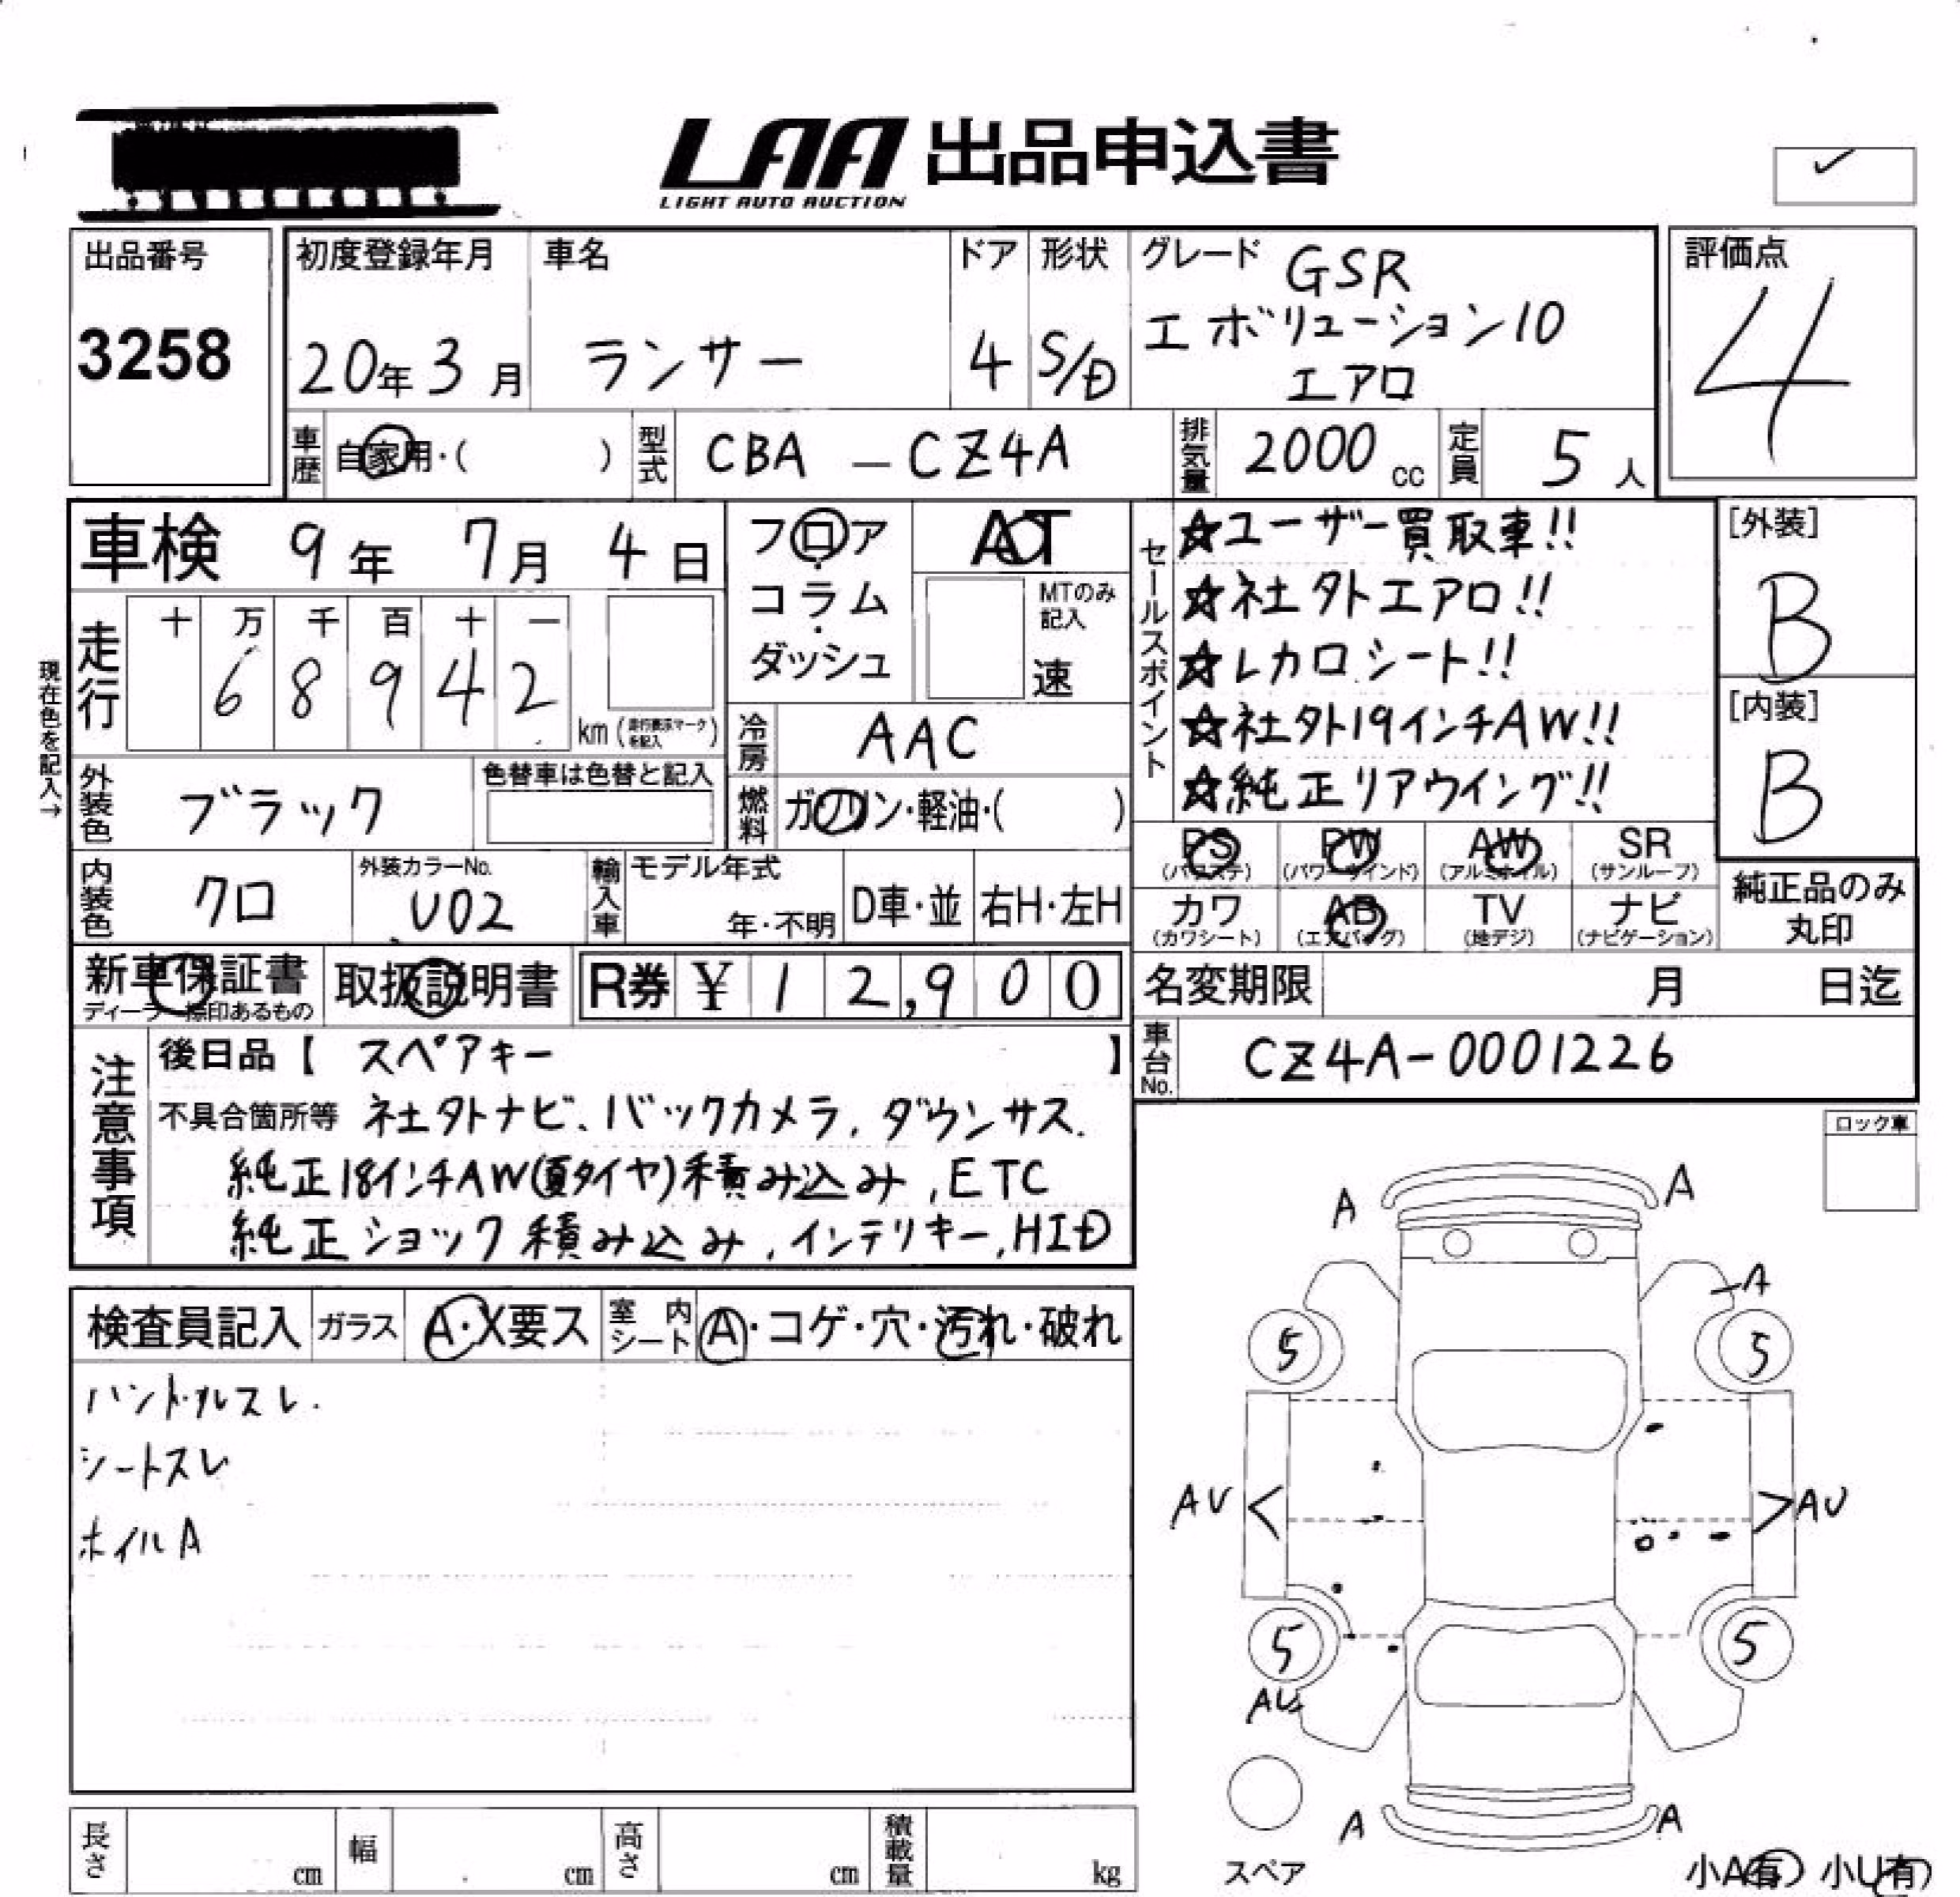 LAA 出品申込書
LIGHT AUTO AUCTION
出品番号
3258
初度登録年月
20年 3月
車名
ランサー
ドア
4
形状
S/D
グレード GSR
エボリューション10
エアロ
評価点
4
車歴 自家用・( )
型式 CBA - CZ4A
排気量 2000 cc
定員 5 人
車検 9年 7月 4日
フロア・コラム・ダッシュ
AT
MTのみ記入
速
セールスポイント
☆ユーザー買取車!!
☆社外エアロ!!
☆レカロシート!!
☆社外19インチAW!!
☆純正リアウイング!!
[外装]
B
[内装]
B
現在色を記入→
走行
十 万 千 百 十 一
6 8 9 4 2
km (走行表示マークを記入)
冷房 AAC
外装色 ブラック
色替車は色替と記入
燃料 ガソリン・軽油・( )
PS (パワステ)
PW (パワーウインド)
AW (アルミホイル)
SR (サンルーフ)
カワ (カワシート)
AB (エアバッグ)
TV (地デジ)
ナビ (ナビゲーション)
純正品のみ丸印
内装色 クロ
外装カラーNo.
U02
輸入車
モデル年式
年・不明
D車・並
右H・左H
新車保証書
ディーラー捺印あるもの
取扱説明書
R券 ¥ 12,900
名変期限 月 日迄
車台No. CZ4A-0001226
注意事項
後日品【 スペアキー 】
不具合箇所等 社外ナビ、バックカメラ、ダウンサス、
純正18インチAW(夏タイヤ)積み込み、ETC
純正ショック積み込み、インテリキー、HID
ロック車
検査員記入
ガラス A・X要ス
室内シート A・コゲ・穴・汚れ・破れ
ハンドルスレ.
シートスレ
ホイルA
A A
A
5 5
AU AU
5 5
AU
A A
スペア
小A有 小U有
長さ cm
幅 cm
高さ cm
積載量 kg